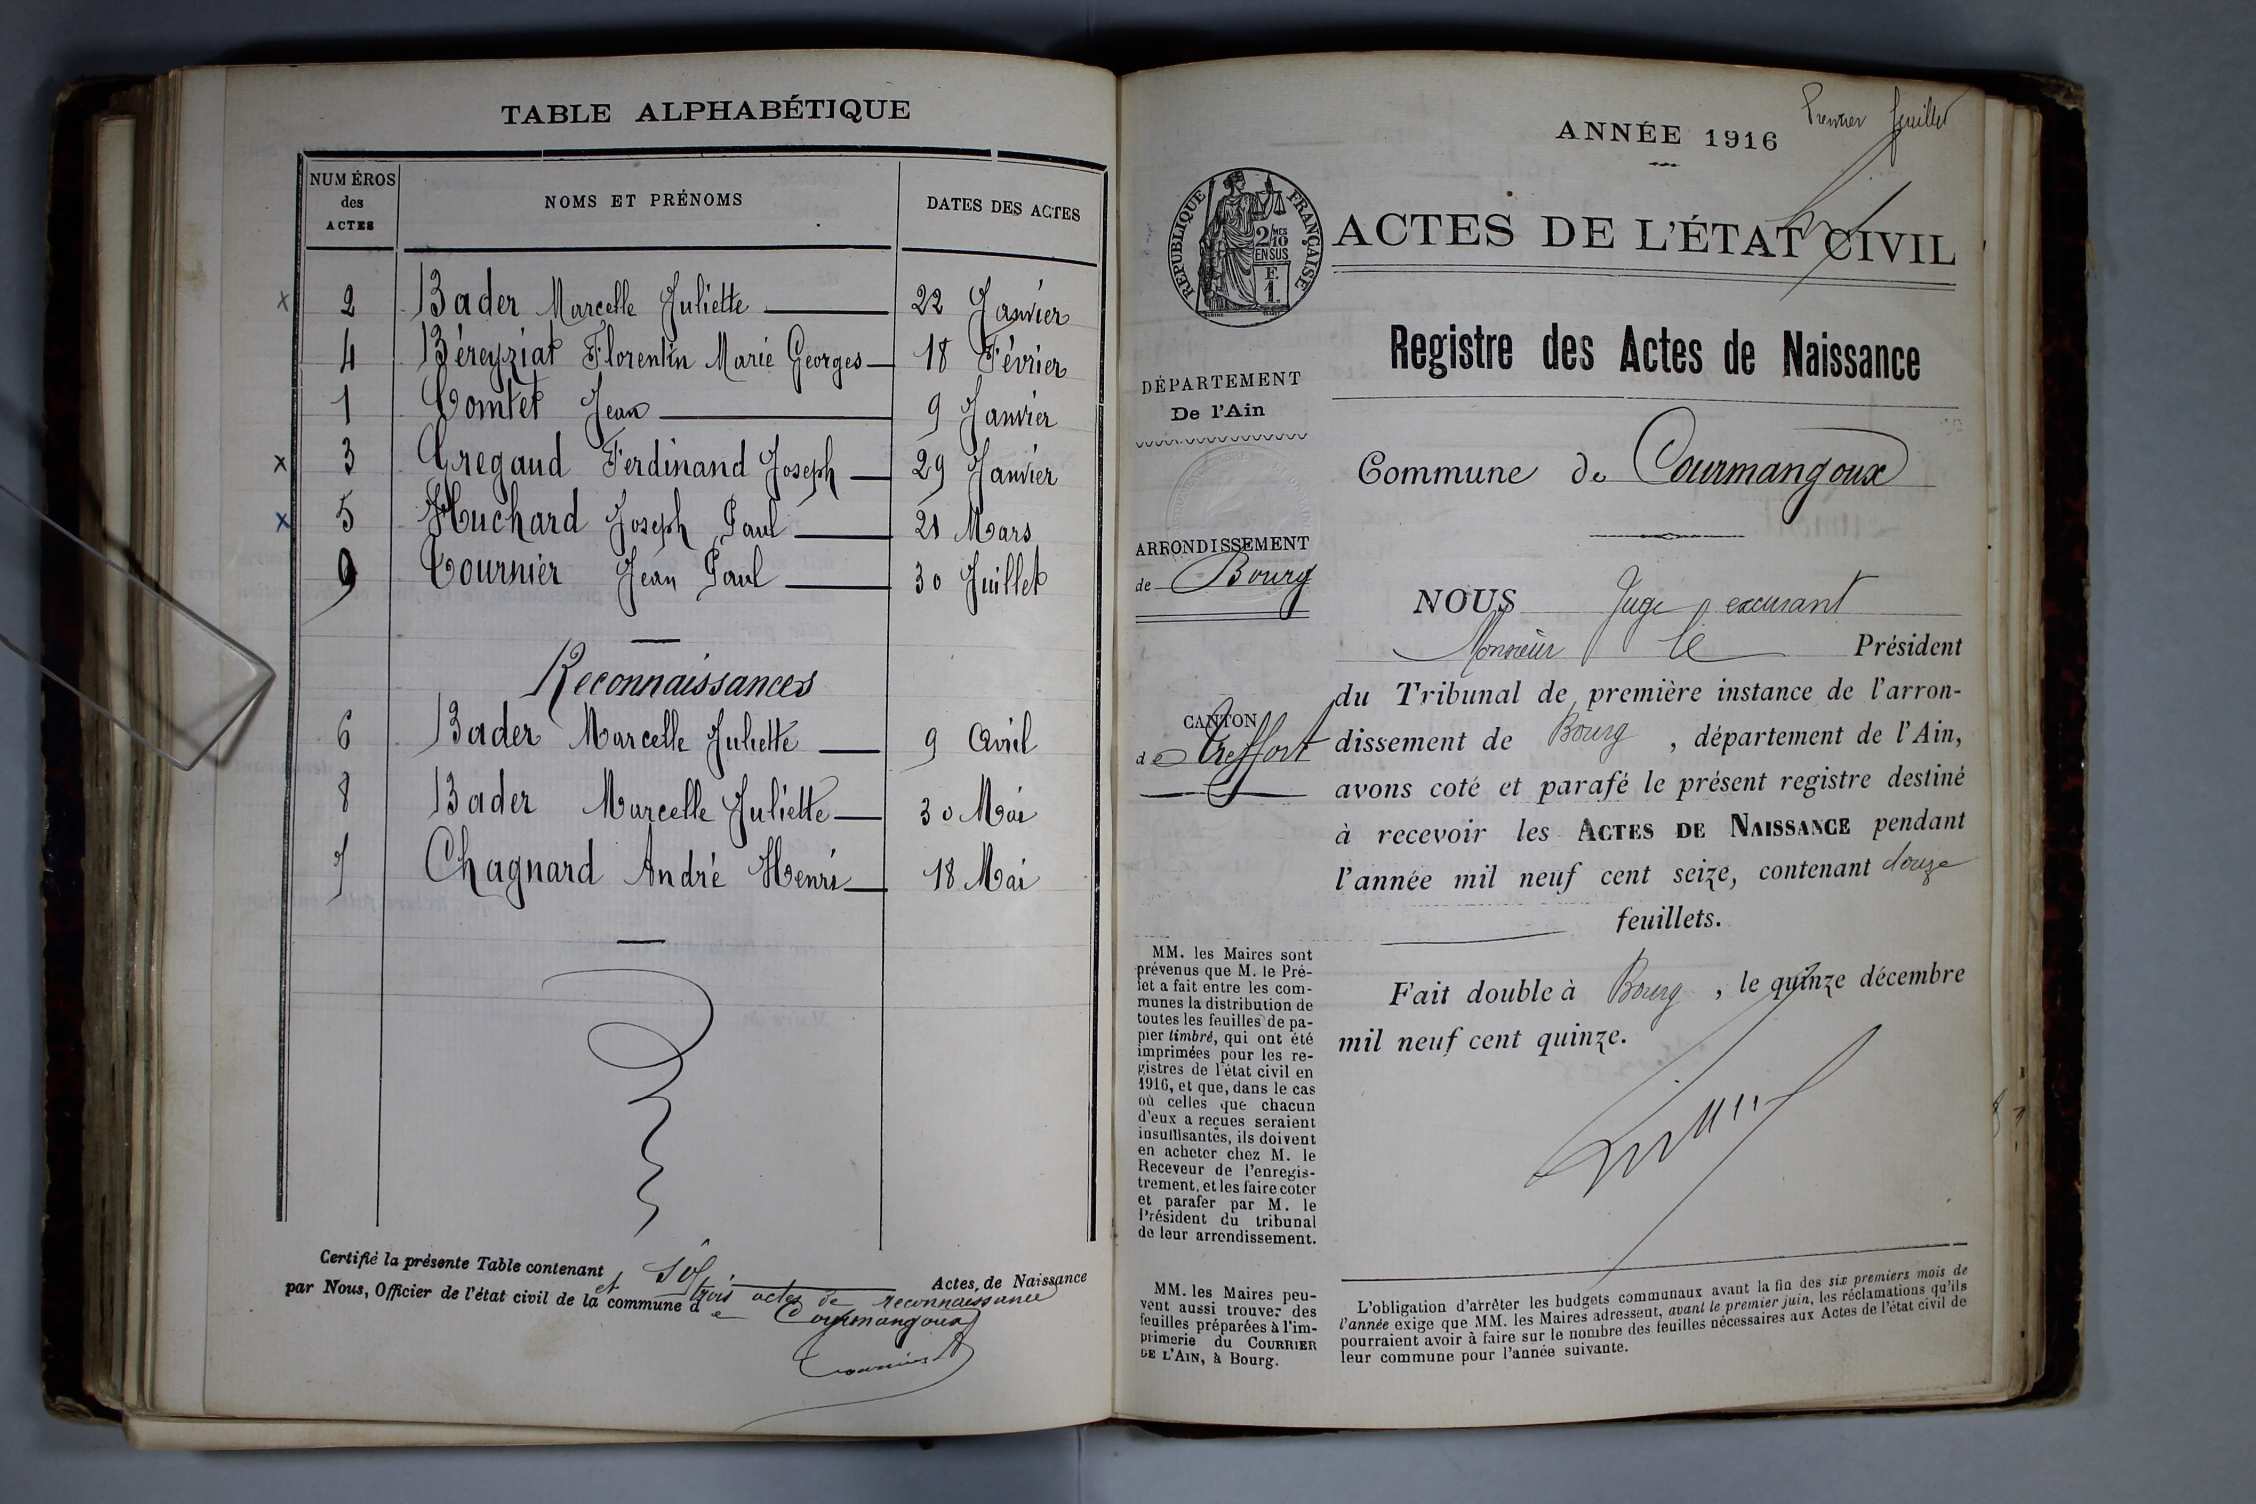 TABLE ALPHABÉTIQUE
NUMÉROS
des
ACTES
NOMS ET PRÉNOMS
DATES DES ACTES
x 2 Bader Marcelle Juliette 22 Janvier
4 Béreyziat Florentin Marie Georges 18 Février
1 Comtet Jean 9 Janvier
x 3 Gregaud Ferdinand Joseph 29 Janvier
x 5 Huchard Joseph Paul 21 Mars
9 Tournier Jean Paul 30 Juillet
Reconnaissances
6 Bader Marcelle Juliette 9 Avril
8 Bader Marcelle Juliette 30 Mai
7 Chagnard André Henri 18 Mai
Certifié la présente Table contenant Actes de Naissance
et trois actes de reconnaissance
par Nous, Officier de l'état civil de la commune de Courmangoux
Tournier
Premier feuillet
ANNÉE 1916
RÉPUBLIQUE FRANÇAISE
2/10 MES
EN SUS
F.
1.
ACTES DE L'ÉTAT CIVIL
Registre des Actes de Naissance
DÉPARTEMENT
De l'Ain
ARRONDISSEMENT
de Bourg
CANTON
de Treffort
Commune de Courmangoux
NOUS Juge excusant
Monsieur le Président
du Tribunal de première instance de l'arron-
dissement de Bourg, département de l'Ain,
avons coté et parafé le présent registre destiné
à recevoir les ACTES DE NAISSANCE pendant
l'année mil neuf cent seize, contenant douze
feuillets.
Fait double à Bourg, le quinze décembre
mil neuf cent quinze.
MM. les Maires sont
prévenus que M. le Pré-
fet a fait entre les com-
munes la distribution de
toutes les feuilles de pa-
pier timbré, qui ont été
imprimées pour les re-
gistres de l'état civil en
1916, et que, dans le cas
où celles que chacun
d'eux a reçues seraient
insuffisantes, ils doivent
en acheter chez M. le
Receveur de l'enregis-
trement, et les faire coter
et parafer par M. le
Président du tribunal
de leur arrondissement.
MM. les Maires peu-
vent aussi trouver des
feuilles préparées à l'im-
primerie du COURRIER
DE L'AIN, à Bourg.
L'obligation d'arrêter les budgets communaux avant la fin des six premiers mois de
l'année exige que MM. les Maires adressent, avant le premier juin, les réclamations qu'ils
pourraient avoir à faire sur le nombre des feuilles nécessaires aux Actes de l'état civil de
leur commune pour l'année suivante.